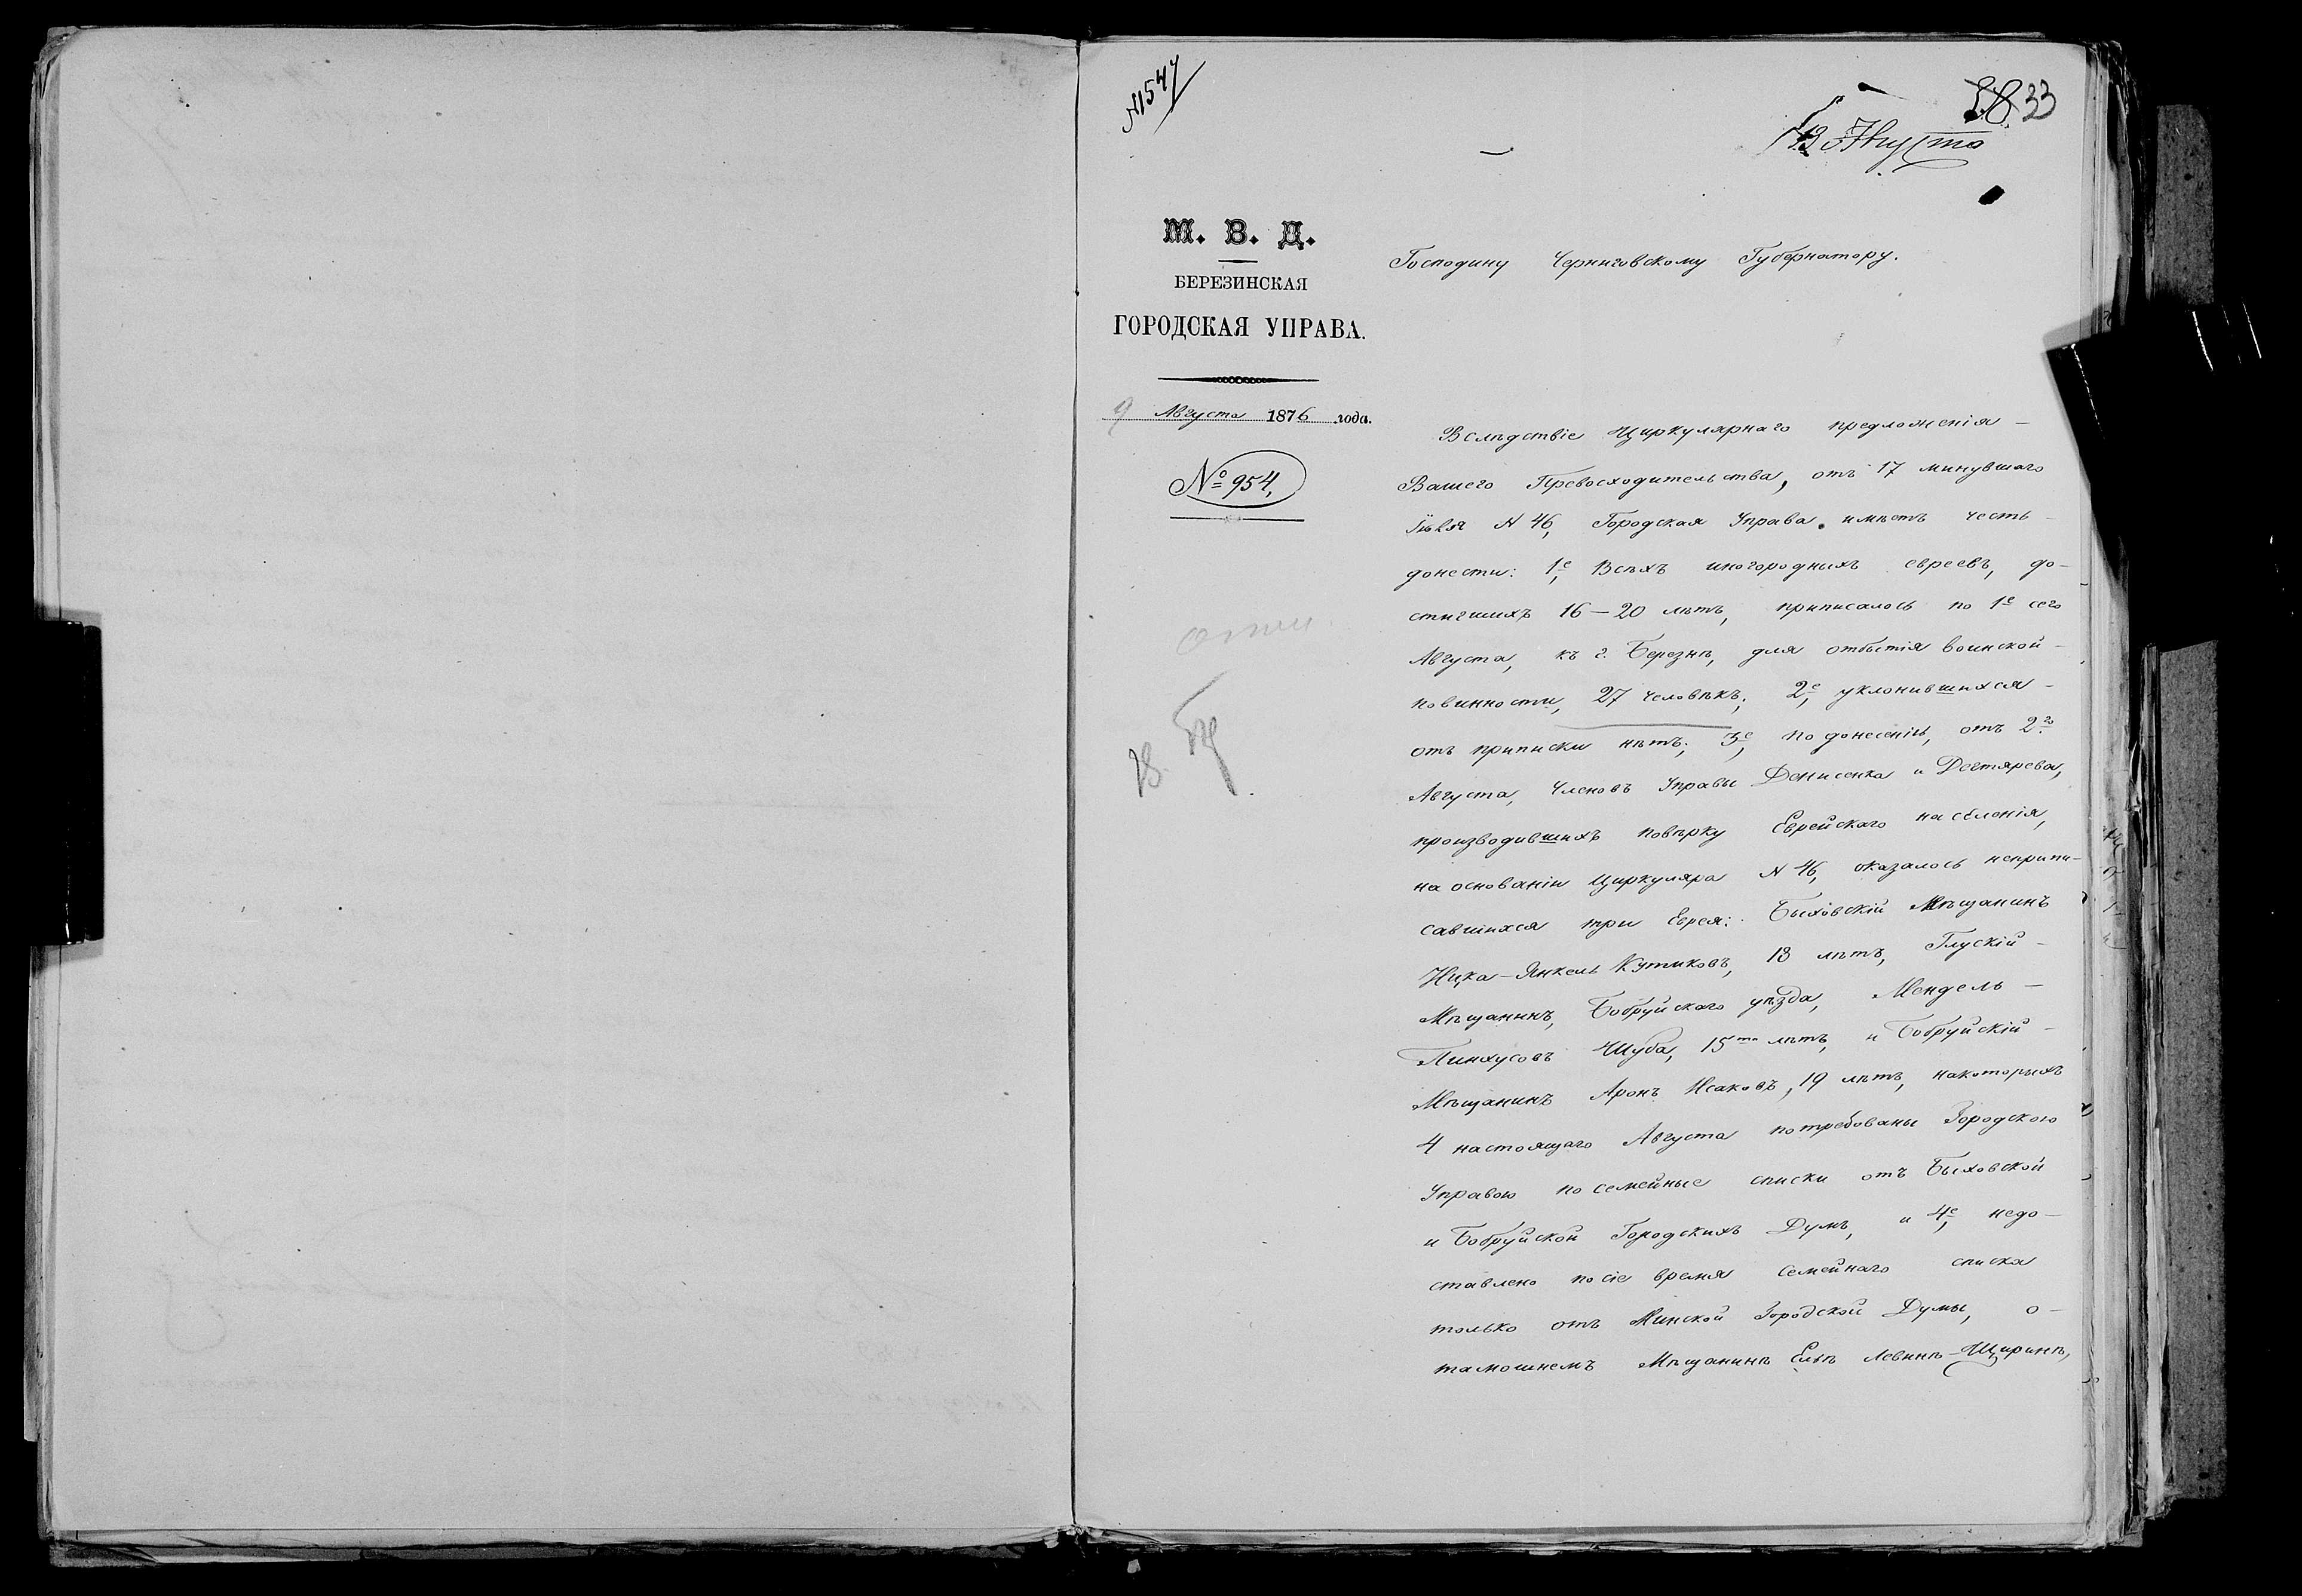 № 1547
33
13 Августа
М. В. Д.
БЕРЕЗИНСКАЯ
ГОРОДСКАЯ УПРАВА.
9 Августа 1876 года.
№ 954,
Господину Черниговскому Губернатору.
Вслѣдствіе Циркулярнаго предложенія –
Вашего Превосходительства, отъ 17 минувшаго
Іюля N 46, Городская Управа имѣетъ честь –
донести: 1е, Всѣхъ иногородныхъ евреевъ, до-
стигшихъ 16–20 лѣтъ, приписалось по 1е сего
Августа, къ г. Березнѣ, для отбытія воинской –
повинности, 27 человѣкъ; 2е, уклонившихся –
отъ приписки нѣтъ; 3е, по донесенію, отъ 2го
Августа, Членовъ Управы Денисенка и Дегтярева,
производившихъ повѣрку Еврейскаго населенія,
на основаніи Циркуляра N 46, оказалось неприпи-
савшихся три Еврея: Быховскій Мѣщанинъ
Ицка-Янкель Кутиковъ, 13 лѣтъ, Глускій –
Мѣщанинъ, Бобруйскаго уѣзда, Мендель –
Пинхусовъ Шуба, 15ти лѣтъ, и Бобруйскій –
Мѣщанинъ Аронъ Исаковъ, 19 лѣтъ, на которыхъ
4 настоящаго Августа потребованы Городскою
Управою посемейные списки отъ Быховской
и Бобруйской Городскихъ Думъ, и 4е, недо-
ставлено по сіе время семейнаго списка
только отъ Минской Городской Думы, о –
тамошнемъ Мѣщанинѣ Елѣ Левинѣ-Ширинѣ,